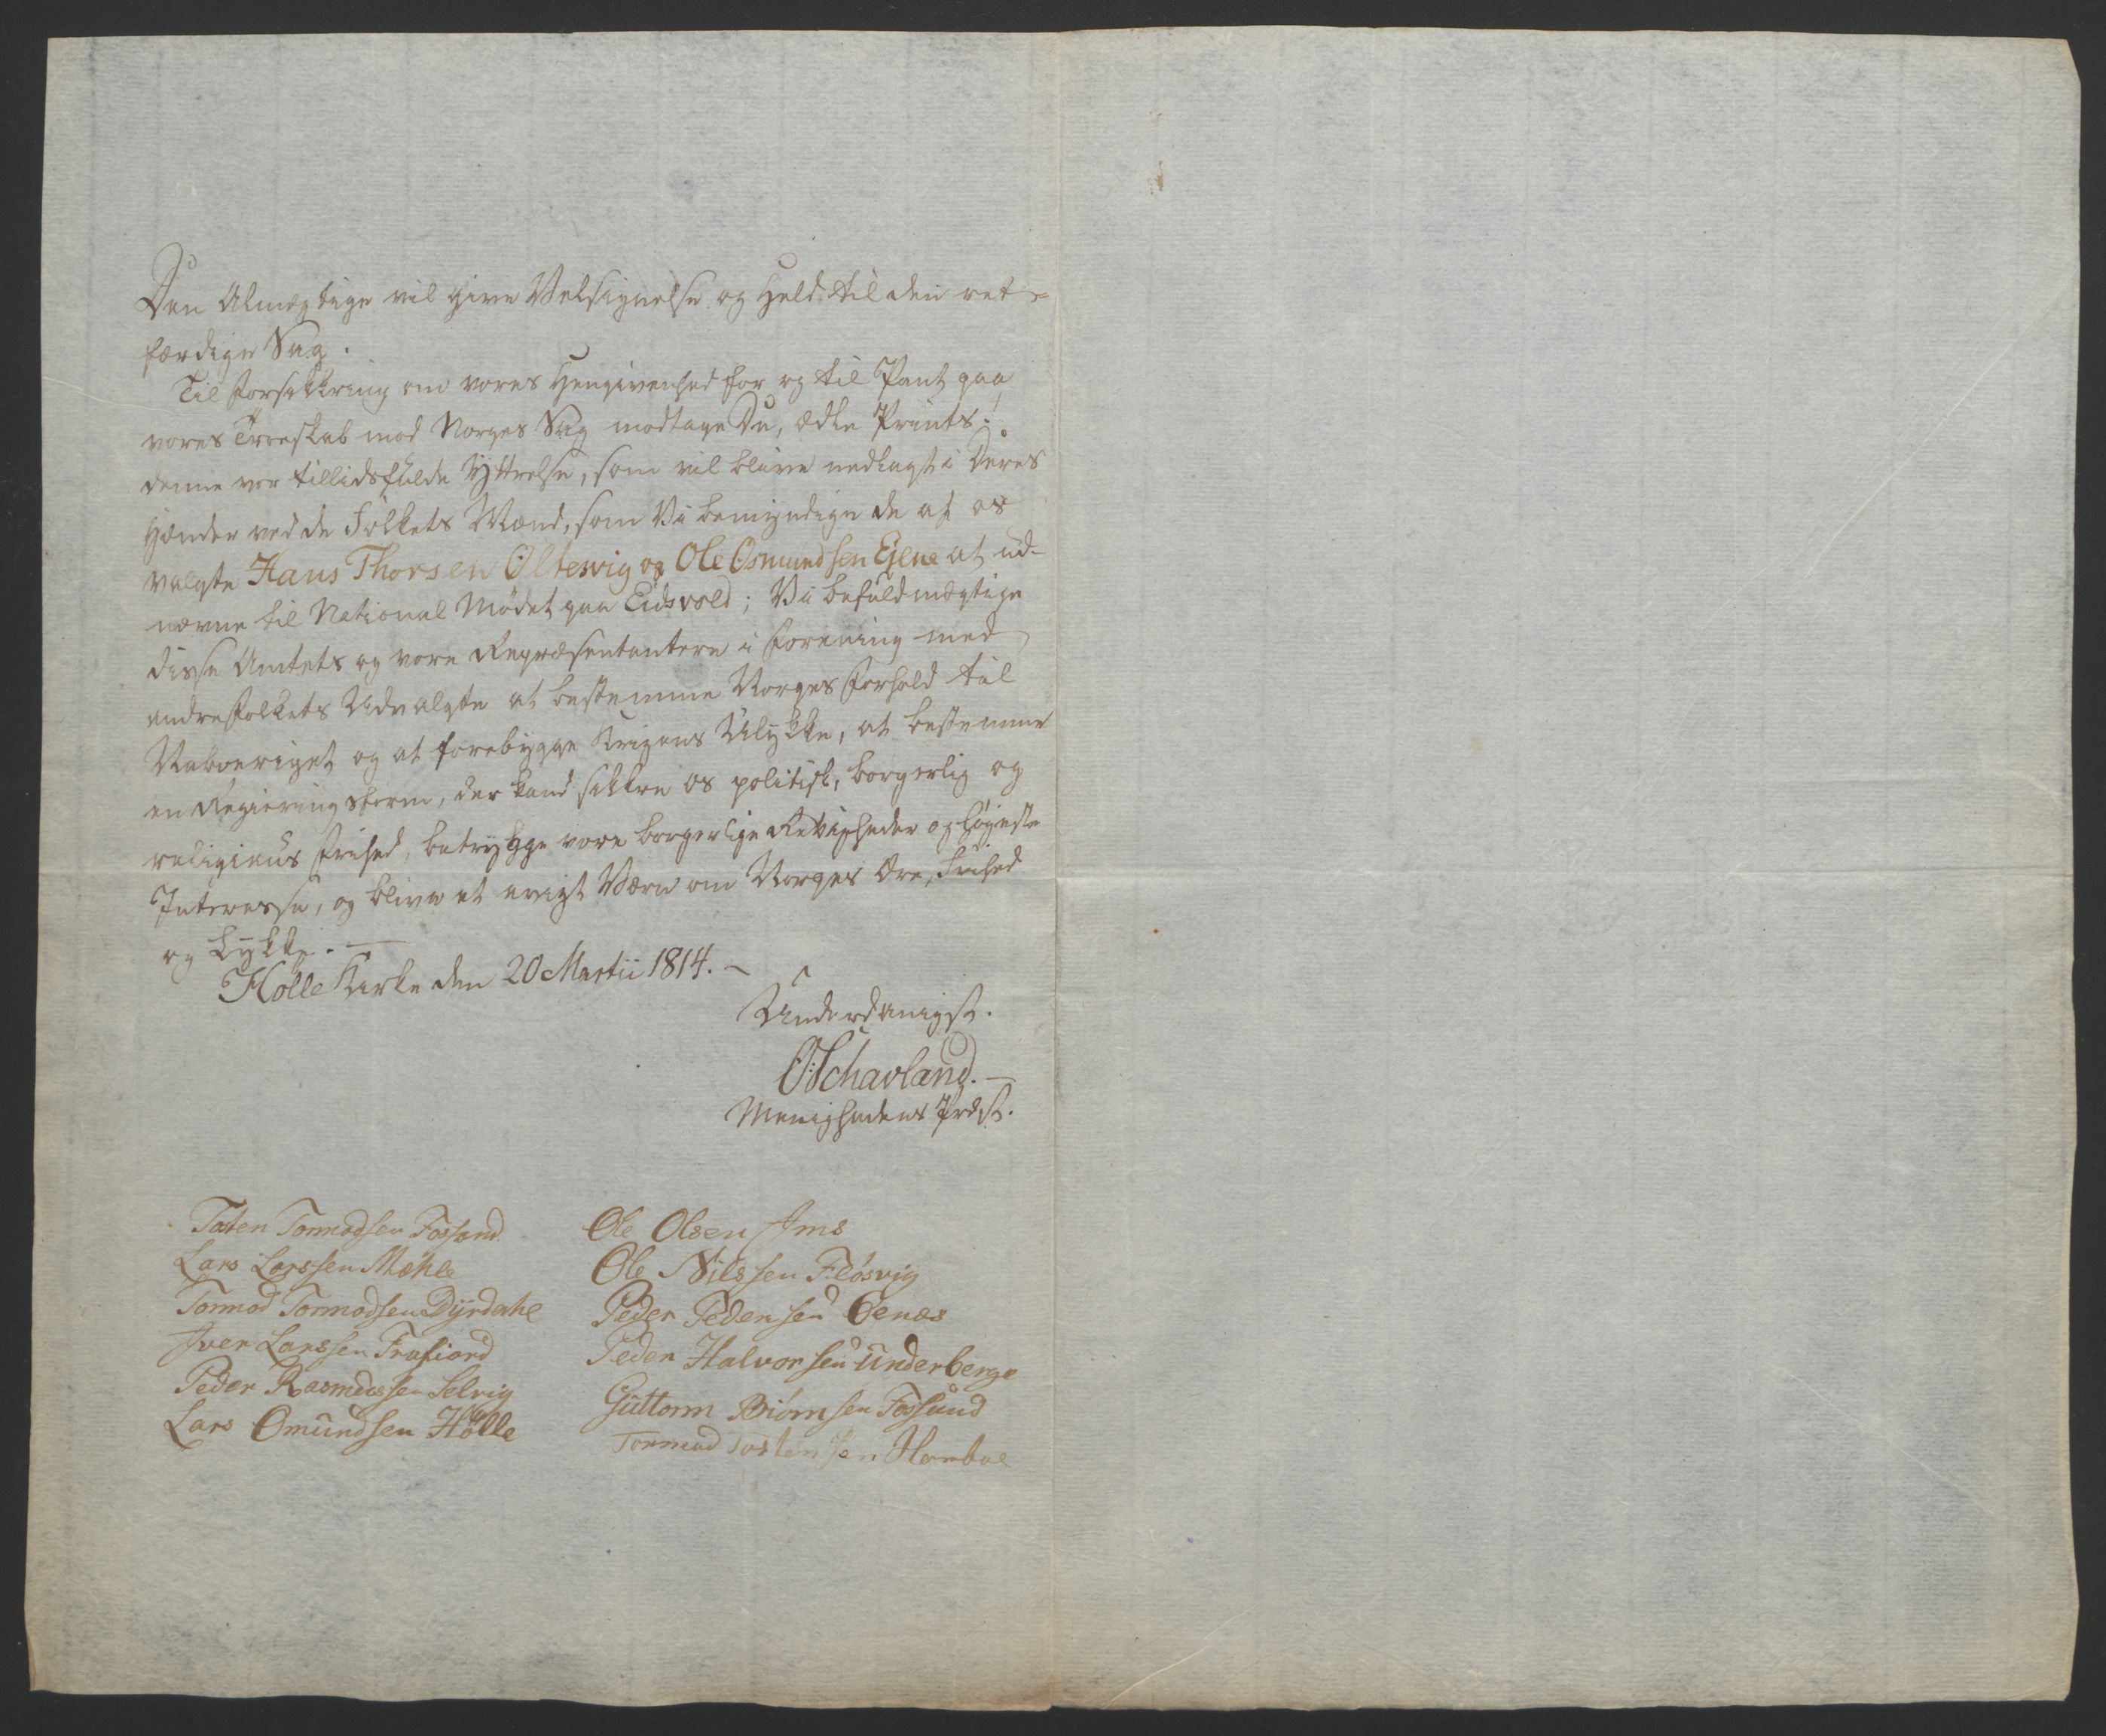 Den Almægtige vil give Velsignelse og Held til den ret-
færdige Sag.
Til Forsikkring om vores Hengivenhed for og til Pant paa
vores Troeskab mod Norges Sag modtage Du, ædle Prints!
denne vor tillidsfulde Yttrelse, som vil blive nedlagt i Deres
Hænder ved de Folkets Mænd, som Vi bemyndige de af os
valgte Hans Thorsen Oltesvig og Ole Osmundsen Ejene at ud-
nævne til National Mødet paa Eidsvold; Vi befuldmægtige
disse Amtets og vore Repræsentantere i Forening med
andre Folkets Udvalgte at bestemme Norges Forhold til
Naboeriget og at forebygge Krigens Ulykke, at bestemme
en Regieringsform, der kand sikkre os politisk, borgerlig og
religieus Frihed, betrygge vore borgerlige Rettigheder og høyeste
Interesse, og blive et evigt Værn om Norges Ære, Frihed
og Lykke. —
Hölle Kirke den 20 Martii 1814. —
Underdanigst.
O Schavland. —
Menighedens Præst.
Tosten Tormodsen Fossand
Lars Larssen Mæhle
Tormod Tormodsen Dyrdahl
Iver Larssen Frafiord
Peder Rasmussen Selvig
Lars Omundsen Hölle
Ole Olsen Ims
Ole Nilssen Fløsvig
Peder Pedersen Oenæs
Peder Halvorsen Underberge
Guttorm Biørnsen Fossand
Tormod Tostensen